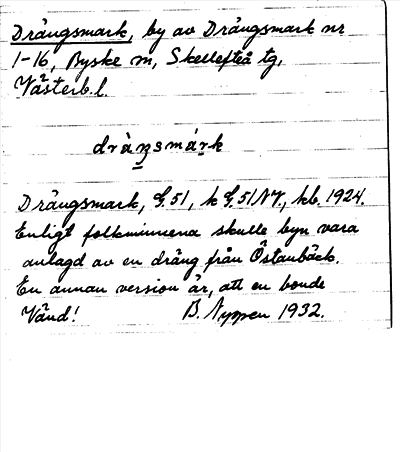 Drängsmark, by av Drängsmark nr
1-16, Byske sn, Skellefteå tg,
Västerb. l.
dràŋsmárk
Drängsmark, G. 51, k G. 51 NV, kb. 1924.
Enligt folkminnena skulle byn vara
anlagd av en dräng från Östanbäck.
En annan version är, att en bonde
Vänd! B. Nyppen 1932.